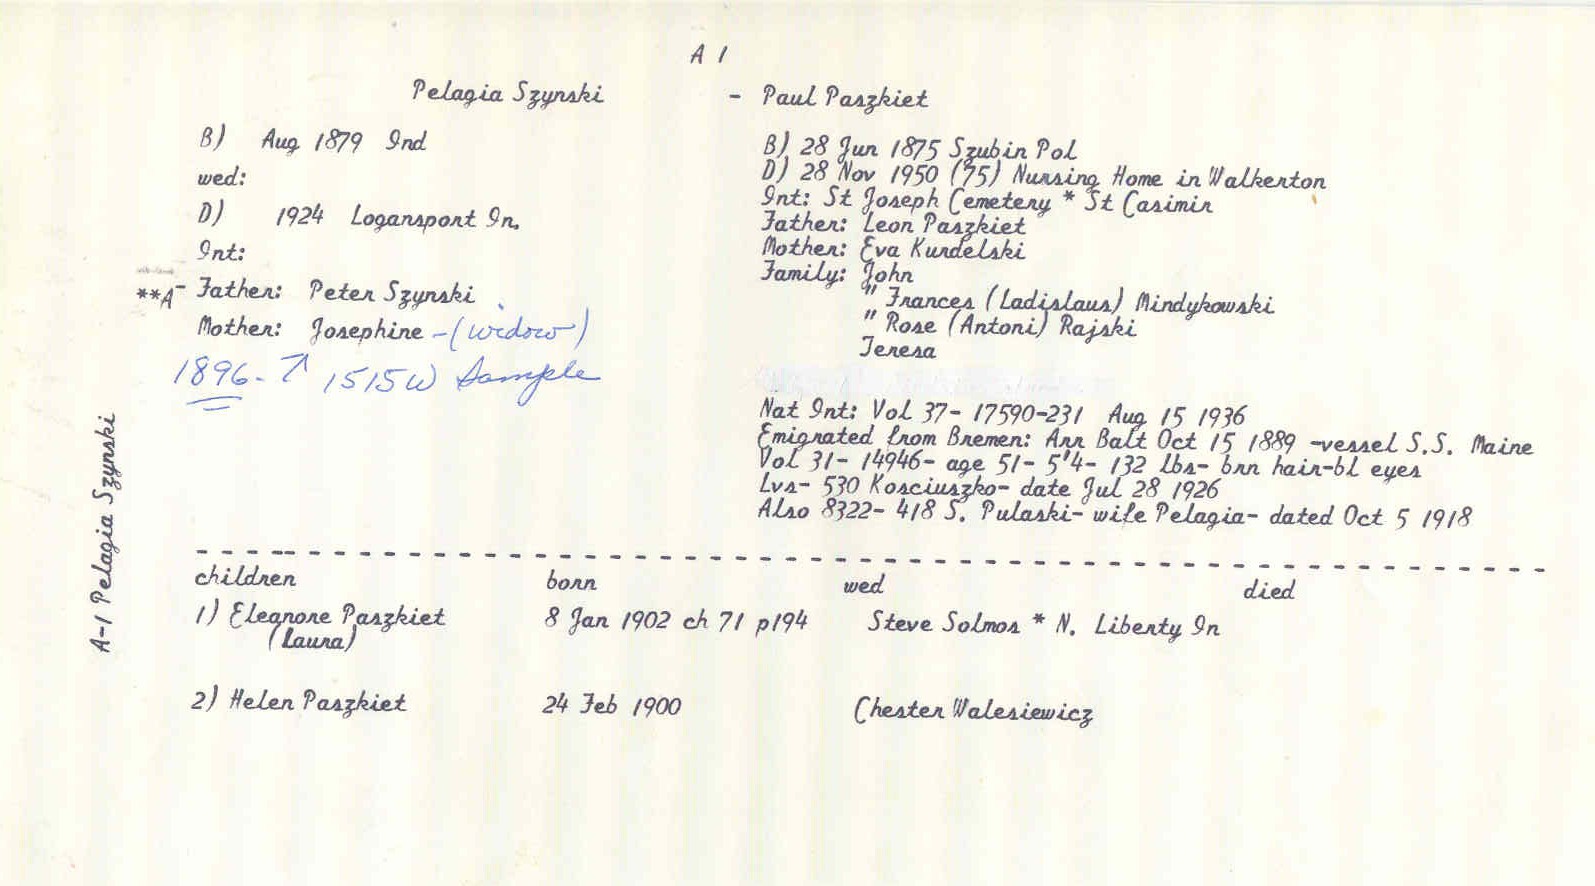 A 1
Pelagia Szynski - Paul Paszkiet
B) Aug 1879 Ind
wed:
D) 1924 Logansport In.
Int:
**A- Father: Peter Szynski
Mother: Josephine -(widow)
1896- ↑ 1515 W Sample
B) 28 Jun 1875 Szubin Pol
D) 28 Nov 1950 (75) Nursing Home in Walkerton
Int: St Joseph Cemetery * St Casimir
Father: Leon Paszkiet
Mother: Eva Kurdelski
Family: John
" Frances (Ladislaus) Mindykowski
" Rose (Antoni) Rajski
Teresa
Nat Int: Vol 37- 17590-231 Aug 15 1936
Emigrated from Bremen: Arr Balt Oct 15 1889 -vessel S.S. Maine
Vol 31- 14946- age 51- 5'4- 132 lbs- brn hair-bl eyes
Lvs- 530 Kosciuszko- date Jul 28 1926
Also 8322- 418 S. Pulaski- wife Pelagia- dated Oct 5 1918
A-1 Pelagia Szynski
children born wed died
1) Eleanore Paszkiet 8 Jan 1902 ch 71 p194 Steve Solmos * N. Liberty In
(Laura)
2) Helen Paszkiet 24 Feb 1900 Chester Walesiewicz